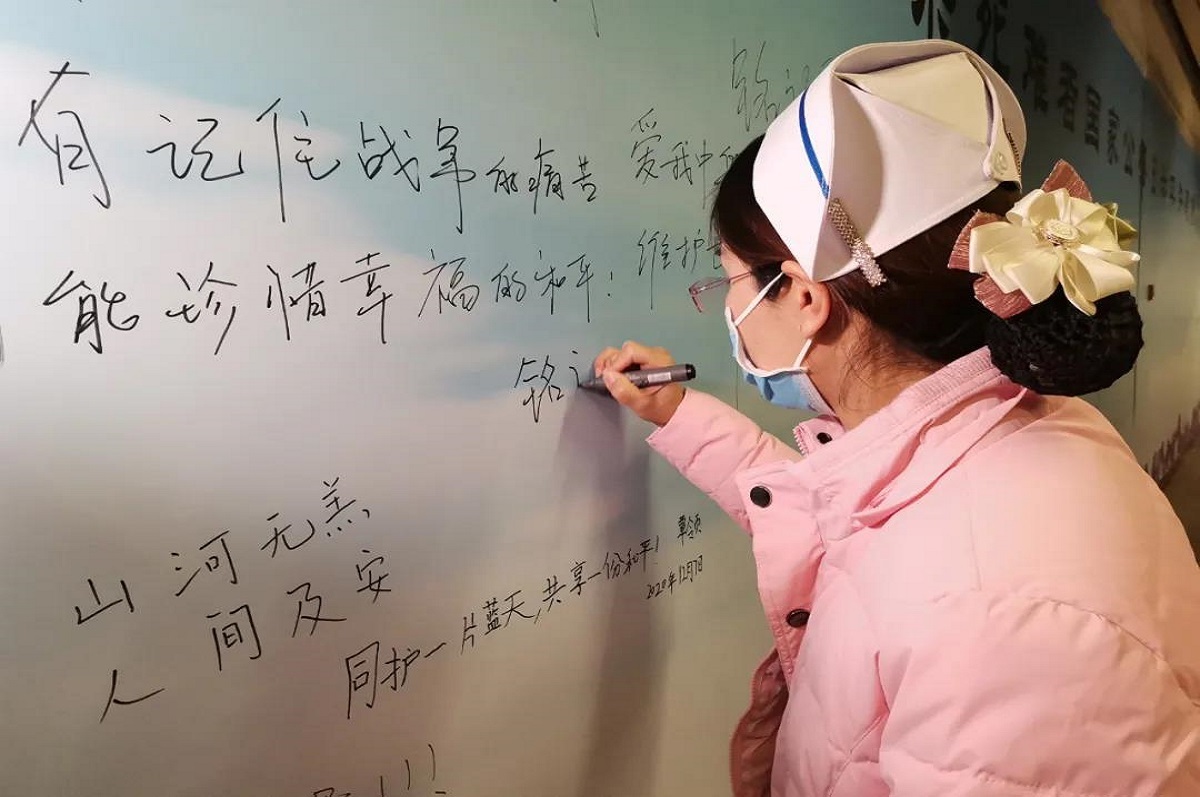 有记住战争的痛苦
能珍惜幸福的和平!
铭
爱我中
维护
铭
山河无恙
人间及安
同护一片蓝天,共享一份和平!
2020年12月7日
国家公